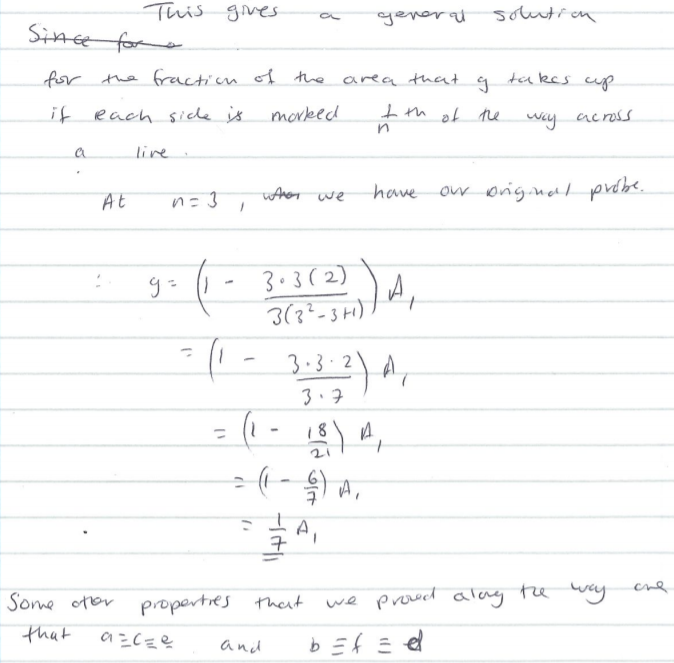 This gives a general solution
Since for a
for the fraction of the area that g takes up
if each side is marked 1/n th of the way across
a line.
At n = 3, when we have our original probe.
∴ g = (1 - 3·3(2) / 3(3²-3+1)) A₁
= (1 - 3·3·2 / 3·7) A₁
= (1 - 18/21) A₁
= (1 - 6/7) A₁
= 1/7 A₁
Some other properties that we proved along the way are
that a≡c≡e and b≡f≡d